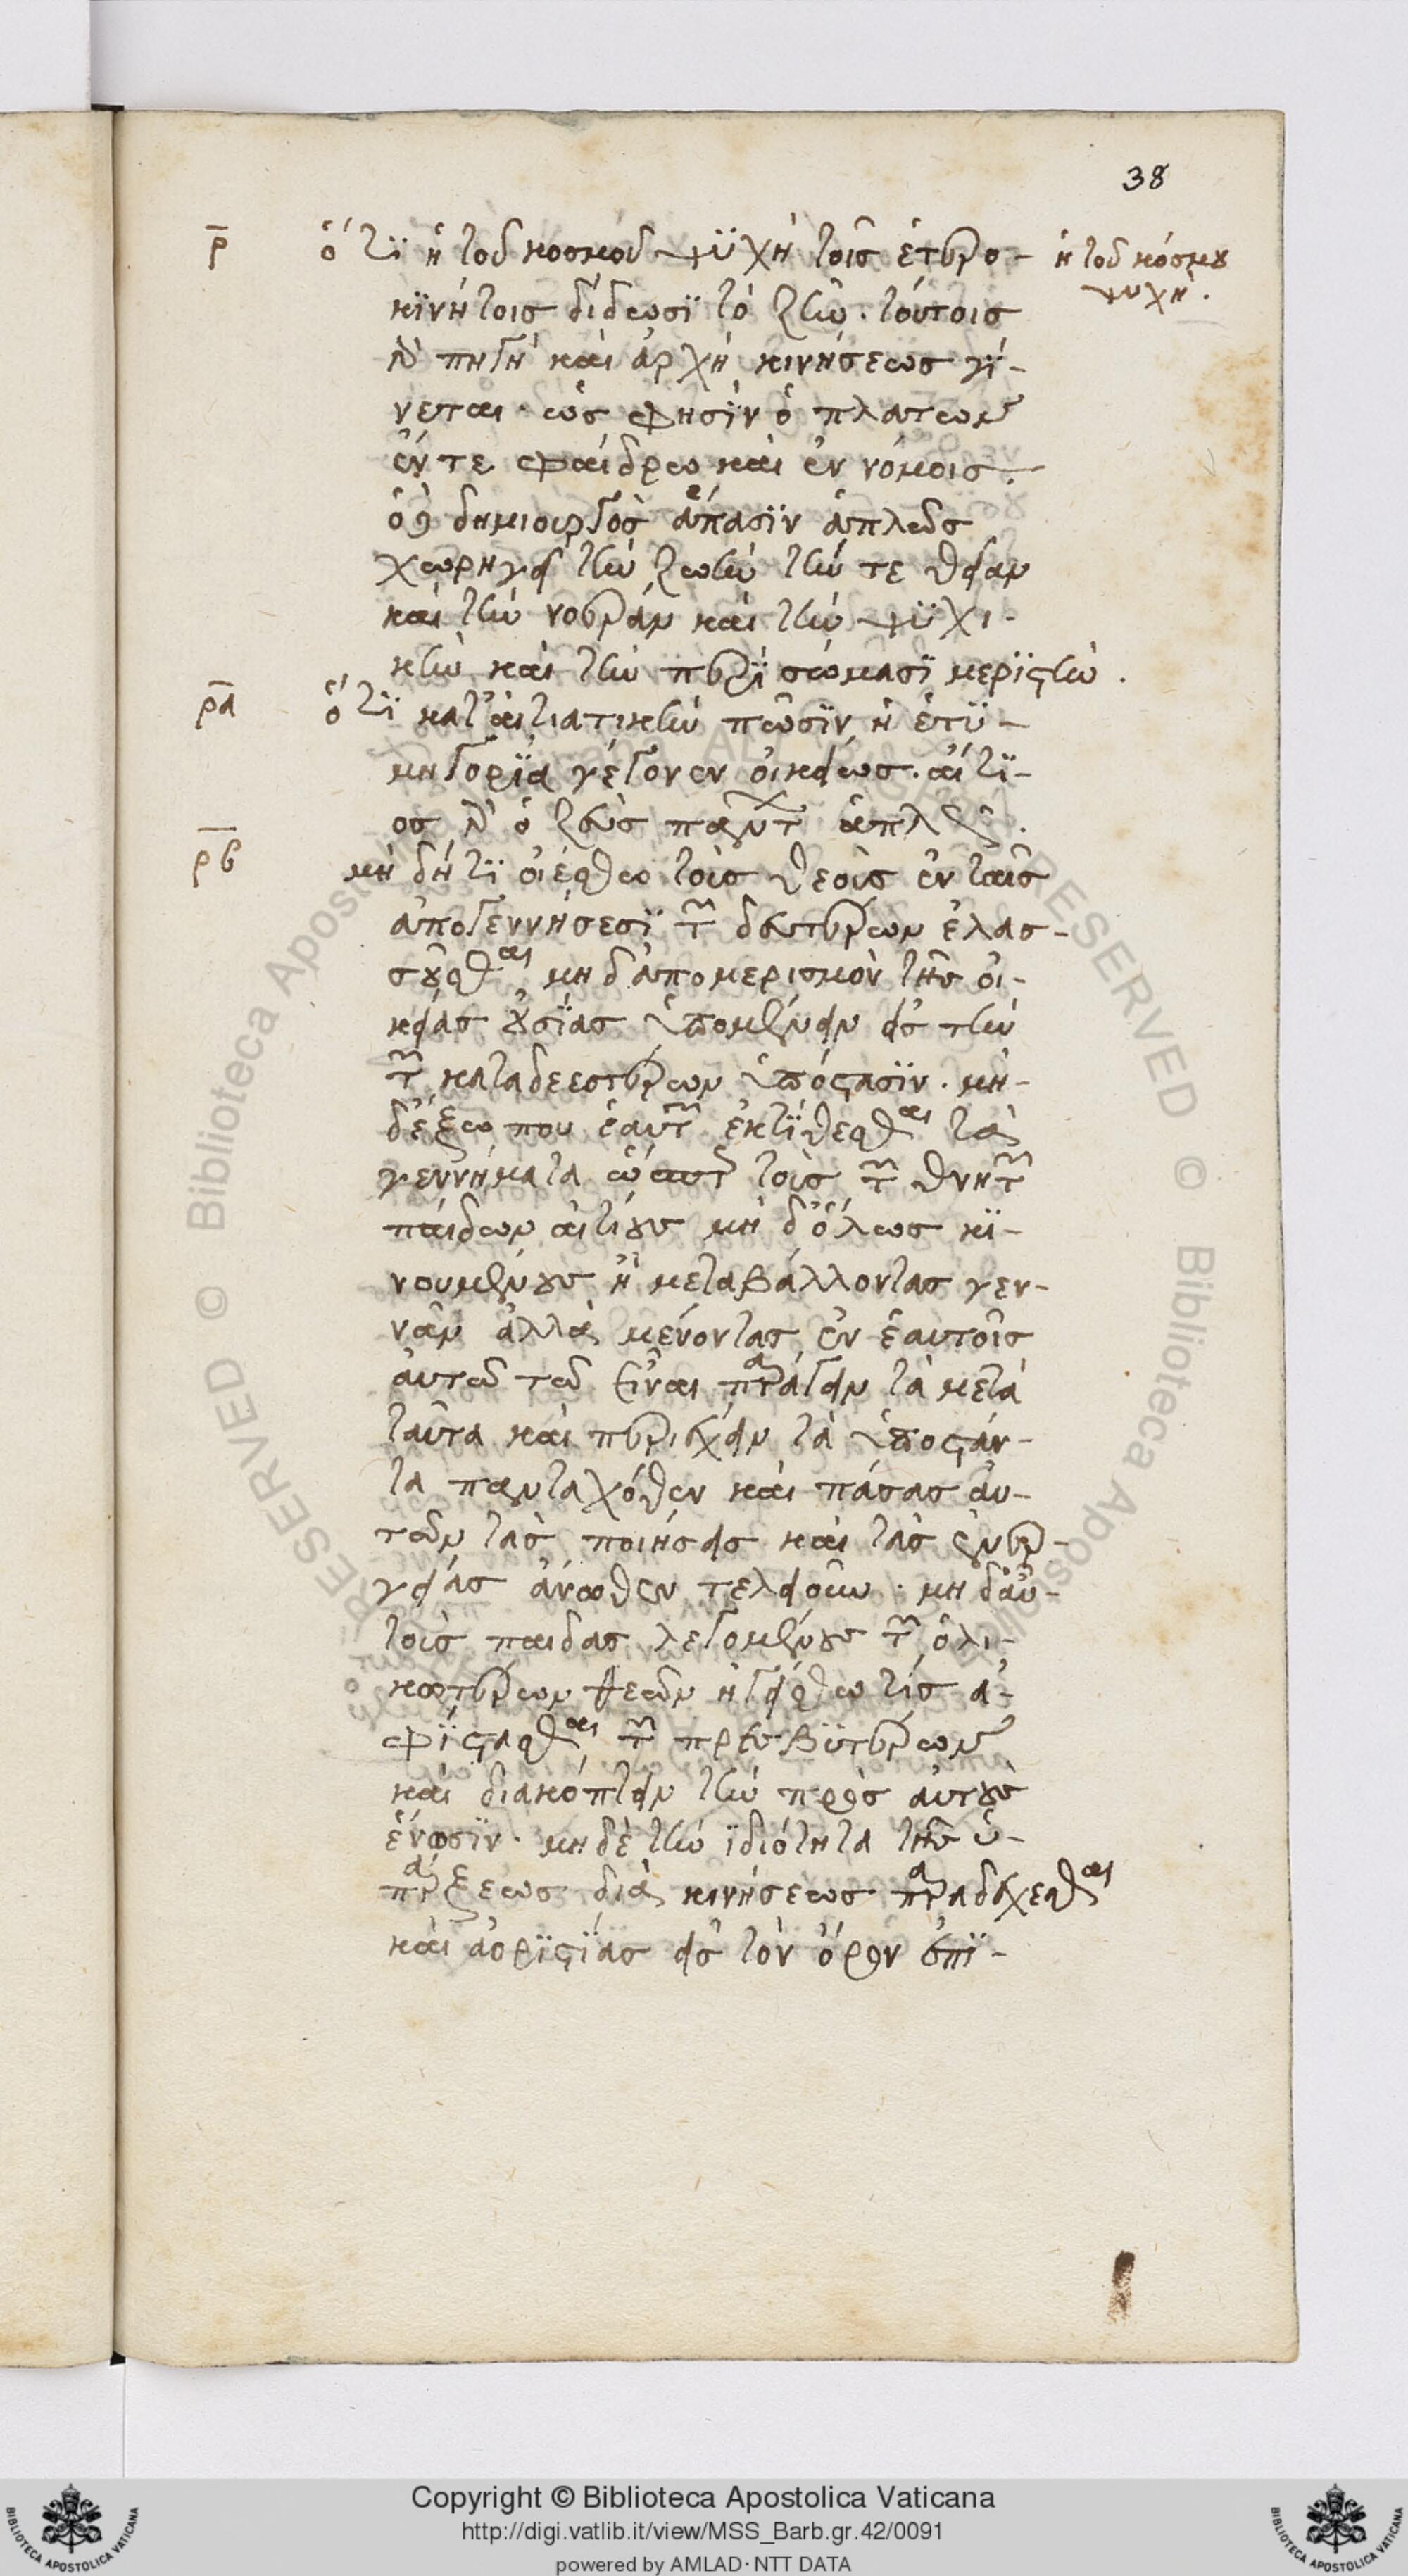 38
ρ̅ ὅτϊ ἡ τοῦ κοσμοῦ ψϋχὴ τοῖς ἑτερο-
ἡ τοῦ κόσμου
ψυχή.
κϊνήτοις δίδωσϊ τὸ ζῆν. τούτοις
γὰρ πηγὴ καὶ ἀρχὴ κινήσεως γί-
νεται. ὡς φησϊν ὁ πλάτων
ἔν τε φαίδρω καὶ ἐν νόμοις.
ὁ δὲ δημιουργὸς ἅπασϊν ἁπλῶς
χωρηγεῖ τὴν ζωὴν τήν τε θείαν
καὶ τὴν νοερὰν καὶ τὴν ψϋχι-
κὴν καὶ τὴν περὶ σώμασϊ μερϊστήν.
ρ̅α̅ ὅτϊ κατ' αἰτιατικὴν πτῶσϊν ἡ ἐτϋ-
μηγορϊα γέγονεν οἰκείως. αἴτϊ-
ος γὰρ ὁ ζεὺς πάντων ἁπλῶς.
ρ̅β̅ μὴ δή τϊ οἰέσθω τοὺς θεοὺς ἐν ταῖς
ἀπογεννήσεσϊ τῶν δευτέρων ἐλασ-
σοῦσθαι, μηδ' ἀπομερισμὸν τῆς οἰ-
κείας οὐσϊας ὑπομένειν εἰς τὴν
τῶν καταδεεστέρων ὑπόστασϊν. μη-
δ' ἔξω που ἑαυτῶν ἐκτϊθεσθαι τὰ
γεννήματα ὥσπερ τοὺς τῶν θνητῶν
παίδων αἰτίους μὴ δ' ὅλως κϊ-
νουμένους ἢ μεταβάλλοντας γεν-
νᾶν ἀλλὰ μένοντας ἐν ἑαυτοῖς
αὐτῶ τῶ εἶναι παράγειν τὰ μετὰ
ταῦτα καὶ περισχεῖν τὰ ὑποστάν-
τα πανταχόθεν καὶ πάσας αὐ-
τῶν τὰς ποιήσεις καὶ τὰς ἐνερ-
γείας ἄνωθεν τελειοῦν. μηδ' αὖ
τοὺς παῖδας λεγομένους τῶν ὁλι-
κωτέρων θεῶν ἡγείσθω τίς ἀ-
φϊστασθαι τῶν πρεσβϋτέρων
καὶ διακόπτειν τὴν πρὸς αὐτοὺς
ἕνωσϊν. μηδὲ τὴν ϊδιότητα τῆς ὑ-
πάρξεως διὰ κινήσεως παραδέχεσθαι
καὶ ἀορϊστϊας εἰς τὸν ὅρον ἐπϊ-
Copyright © Biblioteca Apostolica Vaticana
http://digi.vatlib.it/view/MSS_Barb.gr.42/0091
powered by AMLAD · NTT DATA